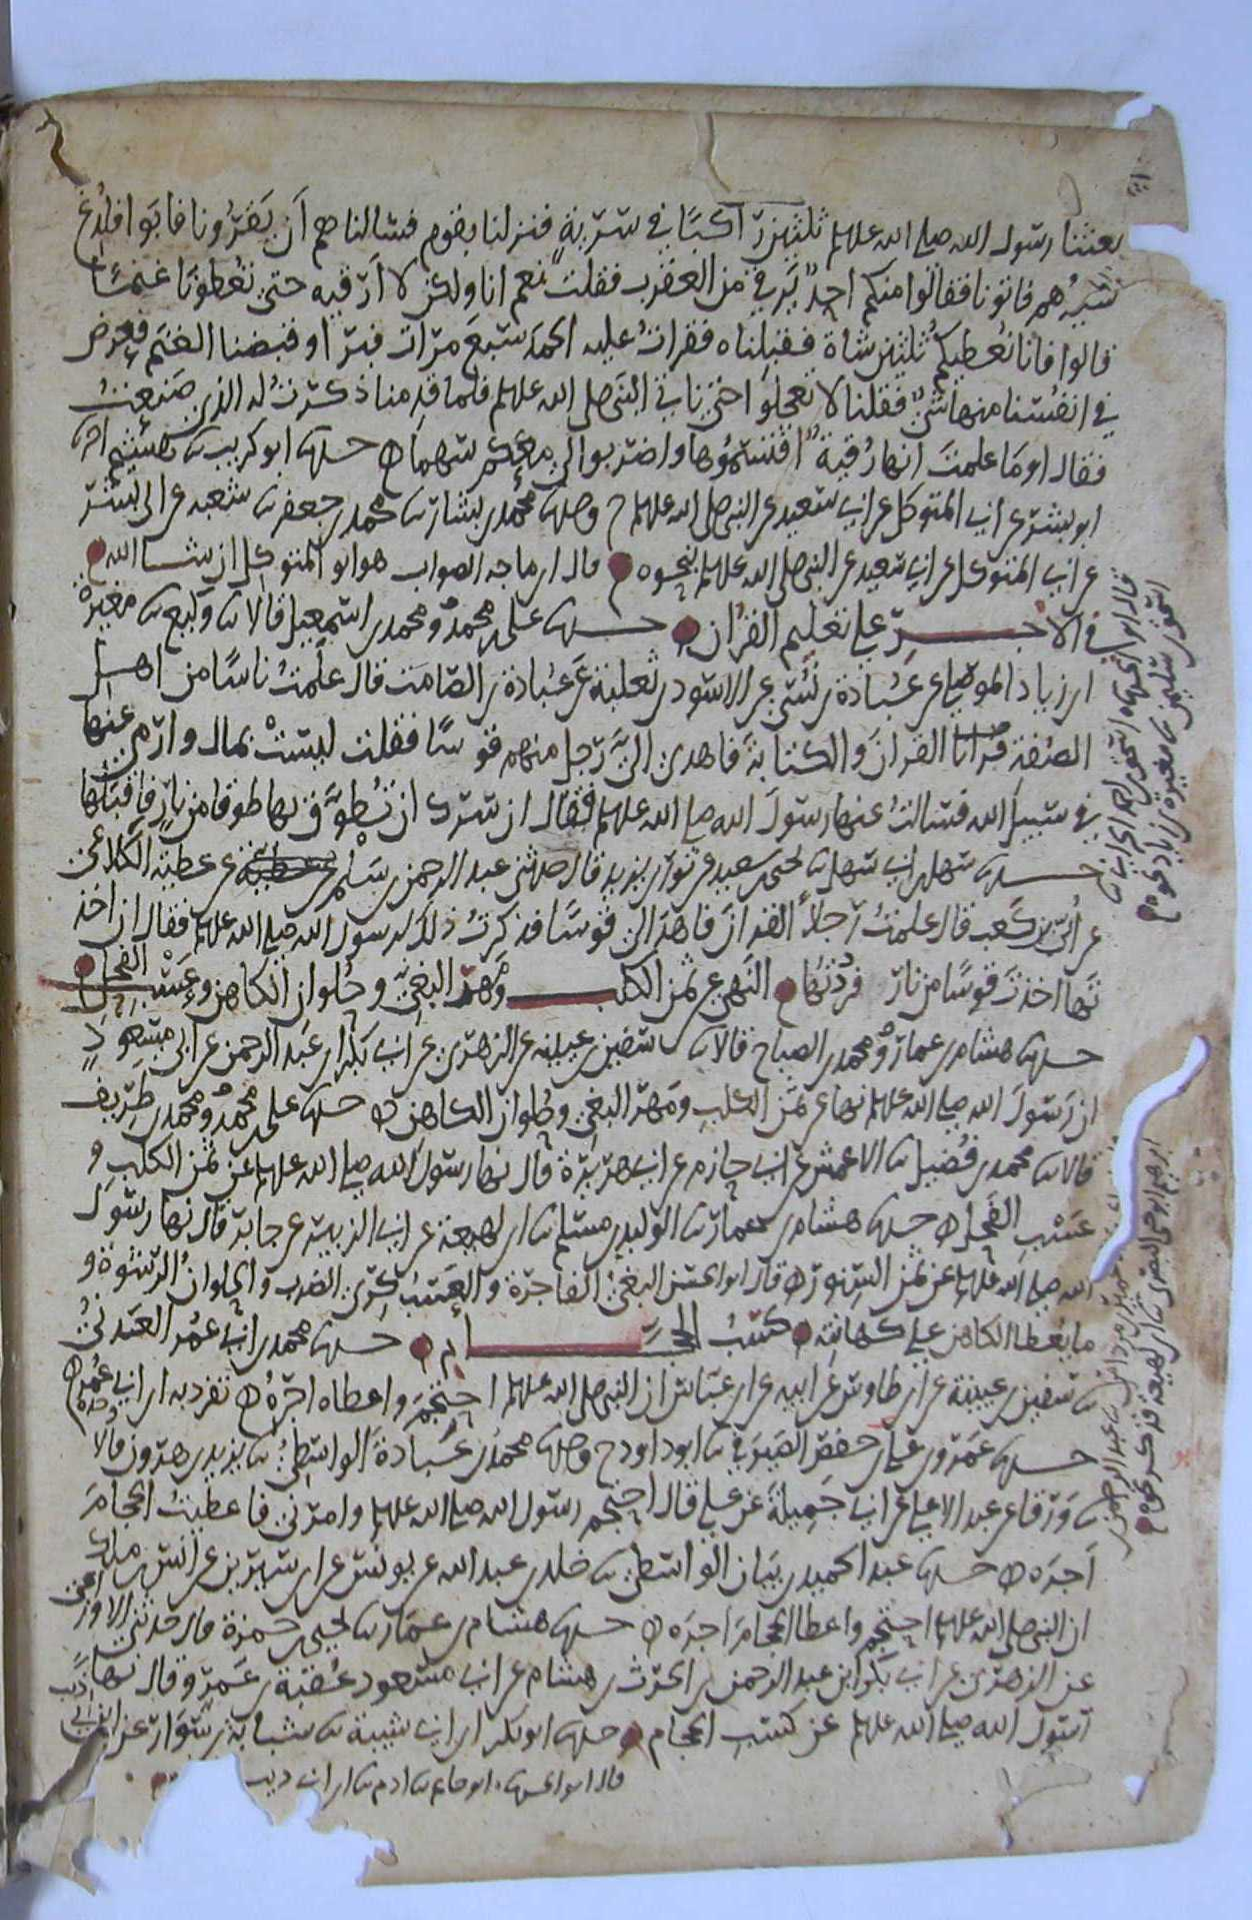 بعثنا رسول الله صلى الله عليه وسلم ثلثين راكبا في سرية فنزلنا بقوم فسالناهم ان يقرونا فابوا فلدغ
سيدهم فاتونا فقالوا منكم احد يرقي من العقرب فقلت نعم انا ولكن لا ارقيه حتى تعطونا غنما
قالوا فانا نعطيكم ثلثين شاة فقبلناه فقرات عليه الحمد سبع مرات فبرا وقبضنا الغنم فعرض
في انفسنا منها شي فقلنا لا تعجلوا حتى ناتي النبي صلى الله عليه وسلم فلما قدمنا ذكرت له الذي صنعت
فقال اوما علمت انها رقية اقتسموها واضربوا لي معكم سهما حدثنا ابو كريب ثنا هشيم انا
ابو بشر عن ابي المتوكل عن ابي سعيد عن النبي صلى الله عليه وسلم ح وحدثنا محمد بن بشار ثنا محمد بن جعفر ثنا شعبه عن ابي بشر
عن ابي المتوكل عن ابي سعيد عن النبي صلى الله عليه وسلم بنحوه قال ابن ماجه الصواب هو ابو المتوكل ان شا الله
في الاجر على تعليم القران حدثنا علي بن محمد ومحمد بن اسمعيل قالا ثنا وكيع ثنا مغيرة
ابن زياد الموصلي عن عبادة بن نسي عن الاسود بن ثعلبة عن عبادة بن الصامت قال علمت ناسا من اهل
الصفة القران والكتابة فاهدى الي رجل منهم قوسا فقلت ليست بمال وارمي عنها
في سبيل الله فسالت عنها رسول الله صلى الله عليه وسلم فقال ان سرك ان تطوق بها طوقا من نار فاقبلها
حدثنا سهل بن ابي سهل ثنا يحيى بن سعيد عن ثور بن يزيد قال حدثني عبد الرحمن بن سلم عن عطية الكلاعي
عن ابي بن كعب قال علمت رجلا القران فاهدا الي قوسا فذكرت ذلك لرسول الله صلى الله عليه وسلم فقال ان اخذ
تها اخذت قوسا من نار فرددتها النهي عن ثمن الكلب ومهر البغي وحلوان الكاهن وعسب الفحل
حدثنا هشام بن عمار ومحمد بن الصباح قالا ثنا سفين بن عيينه عن الزهري عن ابي بكر بن عبد الرحمن عن ابي مسعود
ان رسول الله صلى الله عليه وسلم نها عن ثمن الكلب ومهر البغي وحلوان الكاهن حدثنا علي بن محمد ومحمد بن طريف
قالا ثنا محمد بن فضيل ثنا الاعمش عن ابي حازم عن ابي هريرة قال نها رسول الله صلى الله عليه وسلم عن ثمن الكلب و
عسب الفحل حدثنا هشام بن عمار ثنا الوليد بن مسلم ثنا ابن لهيعة عن ابي الزبير عن جابر قال نها رسول
الله صلى الله عليه وسلم عن ثمن السنور قال ابو الحسن البغي الفاجرة والعسب كرى الضرب والحلوان الرشوة و
ما يعطا الكاهن على كهانته كسب الحجام حدثنا محمد بن ابي عمر العدني
ثنا سفين بن عيينة عن ابن طاوس عن ابيه عن ابن عباس ان النبي صلى الله عليه وسلم احتجم واعطاه اجره تفرد به ابن ابي عمر وحده
حدثنا عمرو بن علي بن حفص الصيرفي ثنا ابو داود ح وحدثنا محمد بن عبادة الواسطي ثنا يزيد بن هرون قالا
ثنا ورقا عن عبد الاعلى عن ابي جميلة عن علي قال احتجم رسول الله صلى الله عليه وسلم وامرني فاعطيت الحجام
اجره حدثنا عبد الحميد بن بيان الواسطي ثنا خلد بن عبد الله عن يونس عن ابن سيرين عن انس بن مالك
ان النبي صلى الله عليه وسلم احتجم واعطا الحجام اجره حدثنا هشام بن عمار ثنا يحيى بن حمزة قال حدثني الاوزاعي
عن الزهري عن ابي بكر ابن عبد الرحمن بن الحرث بن هشام عن ابي مسعود عقبة بن عمرو قال نها
رسول الله صلى الله عليه وسلم عن كسب الحجام حدثنا ابو بكر ابن ابي شيبة ثنا شبابة بن سوار عن ابن ابي ذيب
قال ابو الحسن ثنا ابو حاتم ثنا ادم ثنا ابن ابي ذيب